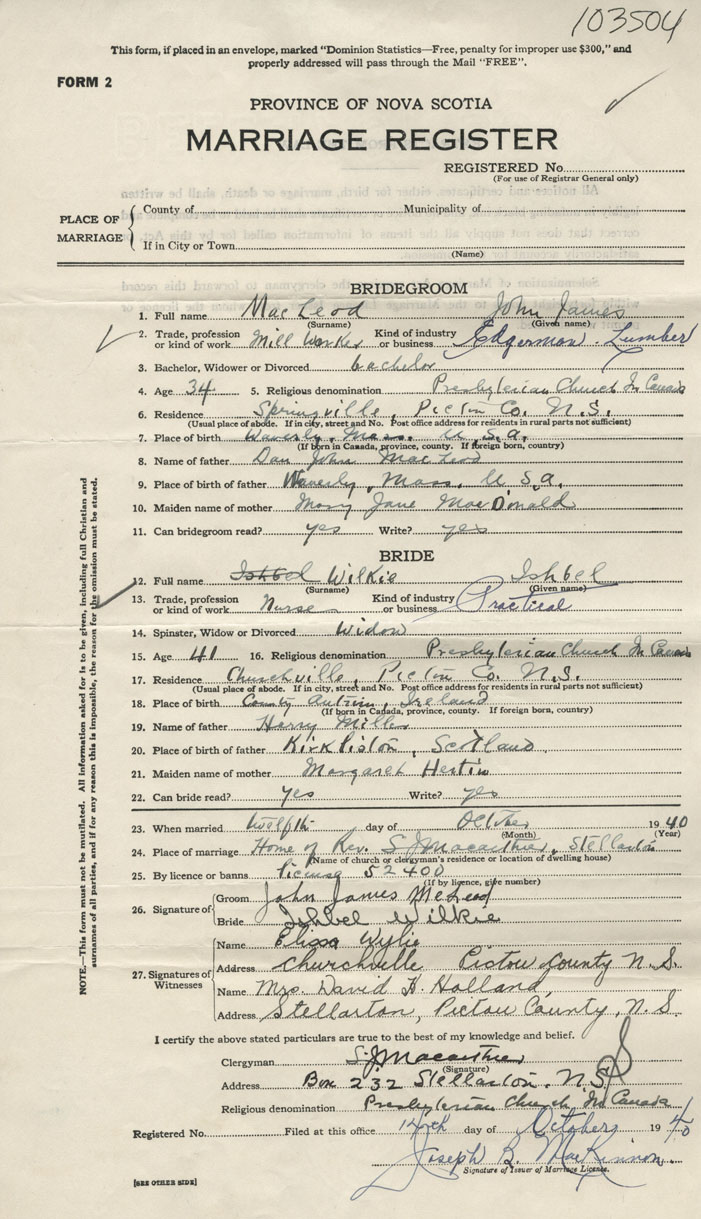 103504
This form, if placed in an envelope, marked "Dominion Statistics—Free, penalty for improper use $300," and
properly addressed will pass through the Mail "FREE".
FORM 2
PROVINCE OF NOVA SCOTIA
MARRIAGE REGISTER
REGISTERED No.
(For use of Registrar General only)
PLACE OF MARRIAGE
County of Municipality of
If in City or Town
(Name)
BRIDEGROOM
1. Full name MacLeod John James
(Surname) (Given name)
2. Trade, profession or kind of work Mill Worker Kind of industry or business Edgerman. Lumber
3. Bachelor, Widower or Divorced bachelor
4. Age 34 5. Religious denomination Presbyterian Church In Canada
6. Residence Springville, Pictou Co. N.S.
(Usual place of abode. If in city, street and No. Post office address for residents in rural parts not sufficient)
7. Place of birth Waverly, Mass. U.S.a.
(If born in Canada, province, county. If foreign born, country)
8. Name of father Dan John MacLeod
9. Place of birth of father Waverly, Mass. U S.a.
10. Maiden name of mother Mary Jane MacDonald
11. Can bridegroom read? yes Write? yes
BRIDE
12. Full name Ishbel Wilkie Ishbel
(Surname) (Given name)
13. Trade, profession or kind of work Nurse Kind of industry or business Practical
14. Spinster, Widow or Divorced Widow
15. Age 41 16. Religious denomination Presbyterian Church In Canada
17. Residence Churchville, Pictou Co. N.S.
(Usual place of abode. If in city, street and No. Post office address for residents in rural parts not sufficient)
18. Place of birth County Antrim, Ireland
(If born in Canada, province, county. If foreign born, country)
19. Name of father Harry Miller
20. Place of birth of father Kirkliston, Scotland
21. Maiden name of mother Margaret
22. Can bride read? yes Write? yes
23. When married twelfth day of October 1940
(Month) (Year)
24. Place of marriage Home of Rev. S J Macarthur, Stellarton
(Name of church or clergyman's residence or location of dwelling house)
25. By licence or banns license 52400
(If by licence, give number)
26. Signature of
Groom John James McLeod
Bride Ishbel Wilkie
27. Signatures of Witnesses
Name Elissa Wylie
Address Churchville Pictou County N.S.
Name Mrs. David H. Holland,
Address Stellarton, Pictou County, N.S.
I certify the above stated particulars are true to the best of my knowledge and belief.
Clergyman S. J Macarthur
(Signature)
Address Box 232 Stellarton. N.S.
Religious denomination Presbyterian Church In Canada
Registered No. Filed at this office 14th day of October 1940
Joseph B. MacKinnon
Signature of Issuer of Marriage License.
[SEE OTHER SIDE]
NOTE.—This form must not be mutilated. All information asked for is to be given, including full Christian and
surnames of all parties, and if for any reason this is impossible, the reason for the omission must be stated.